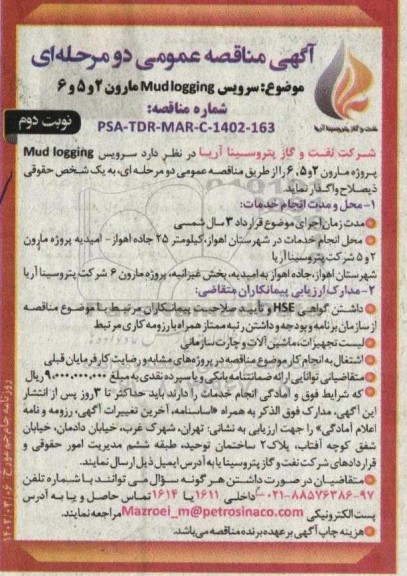 آگهی مناقصه عمومی دو مرحله‌ای
موضوع: سرویس Mud logging مارون ۲ و ۵ و ۶
شماره مناقصه:
PSA-TDR-MAR-C-1402-163
نوبت دوم
نفت و گاز پتروسینا آریا
شرکت نفت و گاز پتروسینا آریا در نظر دارد سرویس Mud logging
پروژه مارون ۲ و ۵، ۶ را از طریق مناقصه عمومی دو مرحله ای، به یک شخص حقوقی
ذیصلاح واگذار نماید
۱- محل و مدت انجام خدمات:
مدت زمان اجرای موضوع قرارداد ۳ سال شمسی
محل انجام خدمات در شهرستان اهواز، کیلومتر ۲۵ جاده اهواز - امیدیه پروژه مارون
۲ و ۵ شرکت پتروسینا آریا
شهرستان اهواز، جاده اهواز به امیدیه، بخش غیزانیه، پروژه مارون ۶ شرکت پتروسینا آریا
۲- مدارک ارزیابی پیمانکاران متقاضی:
داشتن گواهی HSE و تأیید صلاحیت پیمانکاران مرتبط با موضوع مناقصه
از سازمان برنامه و بودجه و داشتن رتبه ممتاز همراه با رزومه کاری مرتبط
لیست تجهیزات، ماشین آلات و چارت سازمانی
اشتغال به انجام کار موضوع مناقصه در پروژه‌های مشابه و رضایت کارفرمایان قبلی
متقاضیانی توانایی ارائه ضمانتنامه بانکی و یا سپرده نقدی به مبلغ ۹,۰۰۰,۰۰۰,۰۰۰ ریال
که شرایط فوق و آمادگی انجام خدمات را دارند باید حداکثر تا ۳ روز پس از انتشار
این آگهی، مدارک فوق الذکر به همراه «اساسنامه، آخرین تغییرات آگهی، رزومه و نامه
اعلام آمادگی» را جهت ارزیابی به نشانی: تهران، شهرک غرب، خیابان دادمان، خیابان
شفق کوچه آفتاب، پلاک ۲ ساختمان توحید، طبقه ششم مدیریت امور حقوقی و
قراردادهای شرکت نفت و گاز پتروسینا یا به آدرس ایمیل ذیل ارسال نمایند.
متقاضیان در صورت داشتن هر گونه سؤال می توانند با شماره تلفن
۰۲۱-۸۸۵۷۶۳۸۶-۹۷ داخلی ۱۶۱۱ یا ۱۶۱۴ تماس حاصل و یا به آدرس
پست الکترونیکی Mazroei_m@petrosinaco.com مراجعه نمایند.
هزینه چاپ آگهی بر عهده برنده مناقصه می‌باشد.
روزنامه جام جم مورخ ۱۴۰۲/۰۳/۰۶